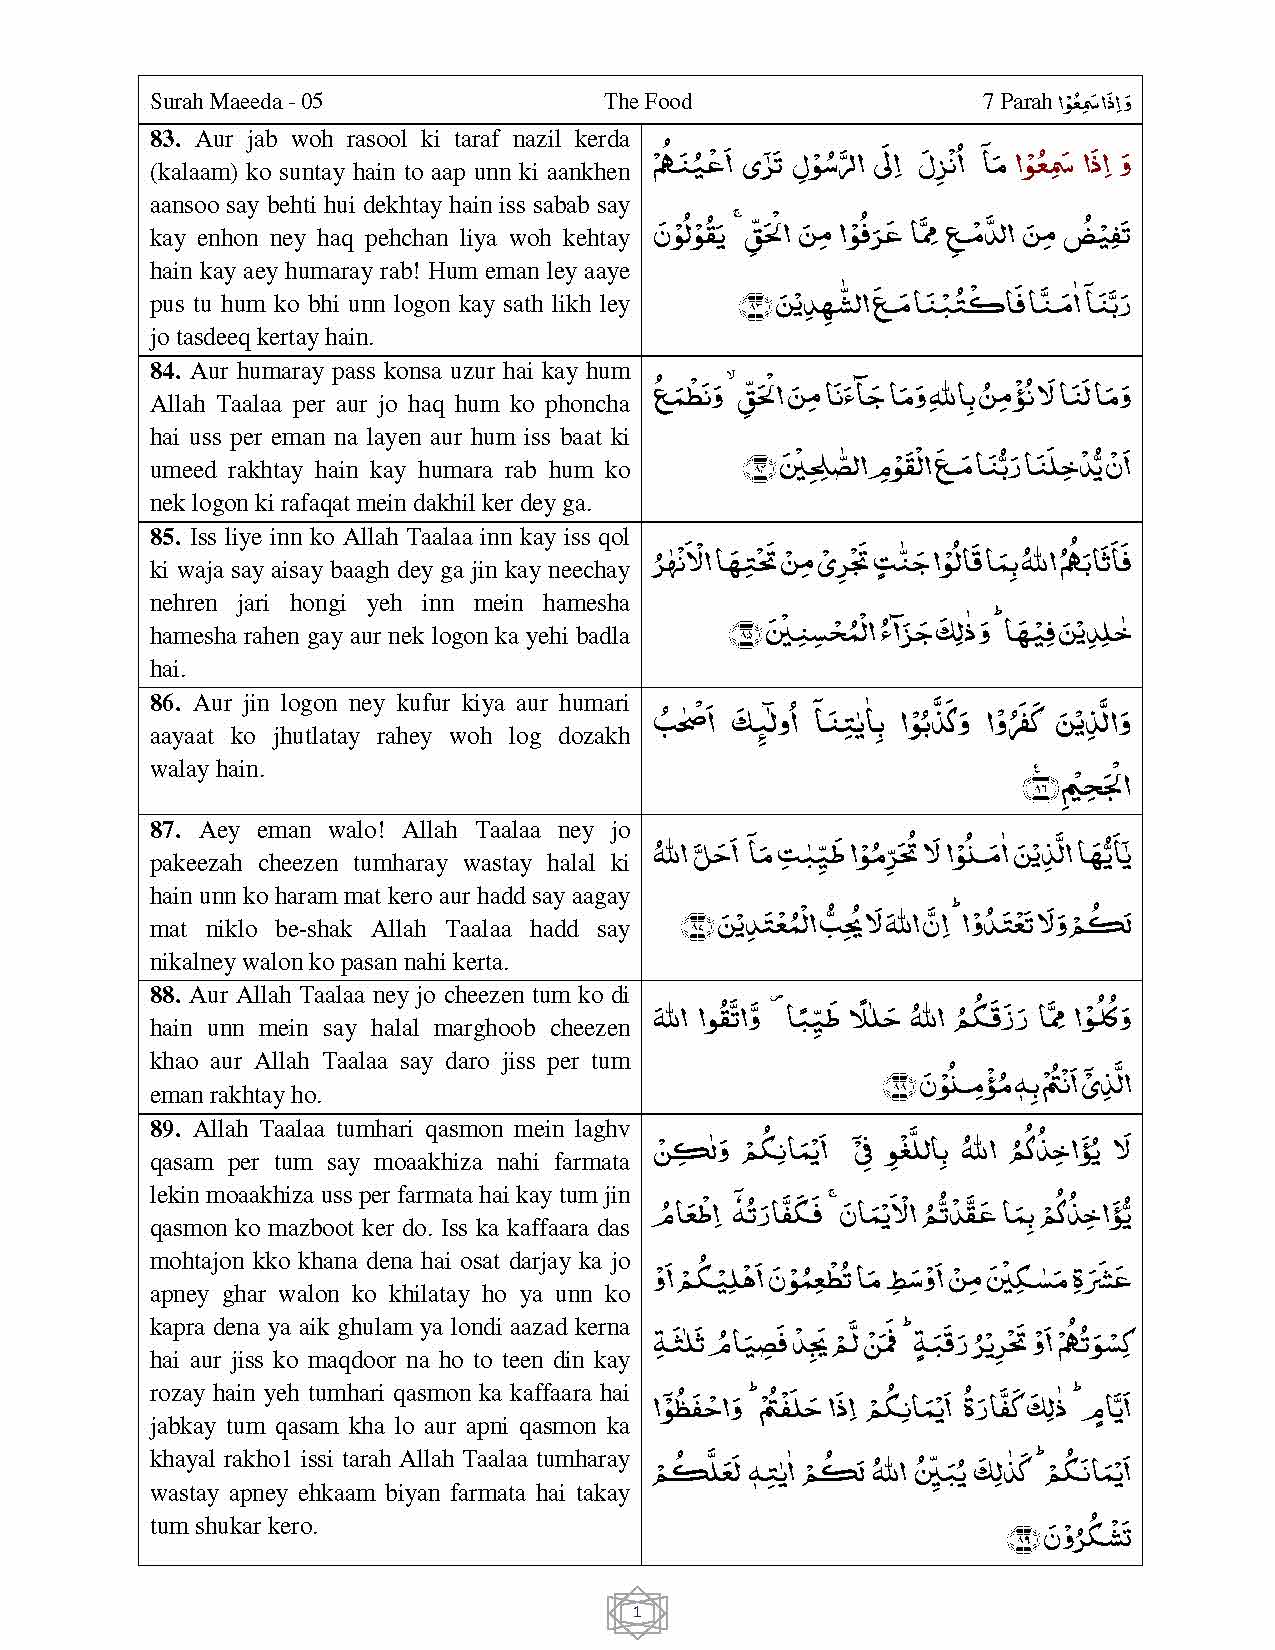 Surah Maeeda - 05 The Food 7 Parah وَ اِذَا سَمِعُوْا
83. Aur jab woh rasool ki taraf nazil kerda
(kalaam) ko suntay hain to aap unn ki aankhen
aansoo say behti hui dekhtay hain iss sabab say
kay enhon ney haq pehchan liya woh kehtay
hain kay aey humaray rab! Hum eman ley aaye
pus tu hum ko bhi unn logon kay sath likh ley
jo tasdeeq kertay hain.
وَ اِذَا سَمِعُوْا مَاۤ اُنْزِلَ اِلَى الرَّسُوْلِ تَرٰۤى اَعْيُنَهُمْ
تَفِيْضُ مِنَ الدَّمْعِ مِمَّا عَرَفُوْا مِنَ الْحَقِّ ۚ يَقُوْلُوْنَ
رَبَّنَاۤ اٰمَنَّا فَاكْتُبْنَا مَعَ الشّٰهِدِيْنَ ﴿۸۳﴾
84. Aur humaray pass konsa uzur hai kay hum
Allah Taalaa per aur jo haq hum ko phoncha
hai uss per eman na layen aur hum iss baat ki
umeed rakhtay hain kay humara rab hum ko
nek logon ki rafaqat mein dakhil ker dey ga.
وَمَا لَنَا لَا نُؤْمِنُ بِاللّٰهِ وَمَا جَآءَنَا مِنَ الْحَقِّ ۙ وَنَطْمَعُ
اَنْ يُّدْخِلَنَا رَبُّنَا مَعَ الْقَوْمِ الصّٰلِحِيْنَ ﴿۸۴﴾
85. Iss liye inn ko Allah Taalaa inn kay iss qol
ki waja say aisay baagh dey ga jin kay neechay
nehren jari hongi yeh inn mein hamesha
hamesha rahen gay aur nek logon ka yehi badla
hai.
فَاَثَابَهُمُ اللّٰهُ بِمَا قَالُوْا جَنّٰتٍ تَجْرِىْ مِنْ تَحْتِهَا الْاَنْهٰرُ
خٰلِدِيْنَ فِيْهَا ؕ وَ ذٰلِكَ جَزَآءُ الْمُحْسِنِيْنَ ﴿۸۵﴾
86. Aur jin logon ney kufur kiya aur humari
aayaat ko jhutlatay rahey woh log dozakh
walay hain.
وَالَّذِيْنَ كَفَرُوْا وَكَذَّبُوْا بِاٰيٰتِنَاۤ اُولٰٓئِكَ اَصْحٰبُ
الْجَحِيْمِ ﴿۸۶﴾
87. Aey eman walo! Allah Taalaa ney jo
pakeezah cheezen tumharay wastay halal ki
hain unn ko haram mat kero aur hadd say aagay
mat niklo be-shak Allah Taalaa hadd say
nikalney walon ko pasan nahi kerta.
يٰۤاَيُّهَا الَّذِيْنَ اٰمَنُوْا لَا تُحَرِّمُوْا طَيِّبٰتِ مَاۤ اَحَلَّ اللّٰهُ
لَـكُمْ وَلَا تَعْتَدُوْا ؕ اِنَّ اللّٰهَ لَا يُحِبُّ الْمُعْتَدِيْنَ ﴿۸۷﴾
88. Aur Allah Taalaa ney jo cheezen tum ko di
hain unn mein say halal marghoob cheezen
khao aur Allah Taalaa say daro jiss per tum
eman rakhtay ho.
وَكُلُوْا مِمَّا رَزَقَكُمُ اللّٰهُ حَلٰلًا طَيِّبًا ۖ وَّاتَّقُوا اللّٰهَ
الَّذِىْۤ اَنْتُمْ بِهٖ مُؤْمِنُوْنَ ﴿۸۸﴾
89. Allah Taalaa tumhari qasmon mein laghv
qasam per tum say moaakhiza nahi farmata
lekin moaakhiza uss per farmata hai kay tum jin
qasmon ko mazboot ker do. Iss ka kaffaara das
mohtajon kko khana dena hai osat darjay ka jo
apney ghar walon ko khilatay ho ya unn ko
kapra dena ya aik ghulam ya londi aazad kerna
hai aur jiss ko maqdoor na ho to teen din kay
rozay hain yeh tumhari qasmon ka kaffaara hai
jabkay tum qasam kha lo aur apni qasmon ka
khayal rakho1 issi tarah Allah Taalaa tumharay
wastay apney ehkaam biyan farmata hai takay
tum shukar kero.
لَا يُؤَاخِذُكُمُ اللّٰهُ بِاللَّغْوِ فِىْۤ اَيْمَانِكُمْ وَلٰـكِنْ
يُّؤَاخِذُكُمْ بِمَا عَقَّدْتُّمُ الْاَيْمَانَ ۚ فَكَفَّارَتُهٗۤ اِطْعَامُ
عَشَرَةِ مَسٰكِيْنَ مِنْ اَوْسَطِ مَا تُطْعِمُوْنَ اَهْلِيْكُمْ اَوْ
كِسْوَتُهُمْ اَوْ تَحْرِيْرُ رَقَبَةٍ ؕ فَمَنْ لَّمْ يَجِدْ فَصِيَامُ ثَلٰثَةِ
اَيَّامٍ ؕ ذٰلِكَ كَفَّارَةُ اَيْمَانِكُمْ اِذَا حَلَفْتُمْ ؕ وَاحْفَظُوْۤا
اَيْمَانَكُمْ ؕ كَذٰلِكَ يُبَيِّنُ اللّٰهُ لَـكُمْ اٰيٰتِهٖ لَعَلَّـكُمْ
تَشْكُرُوْنَ ﴿۸۹﴾
1